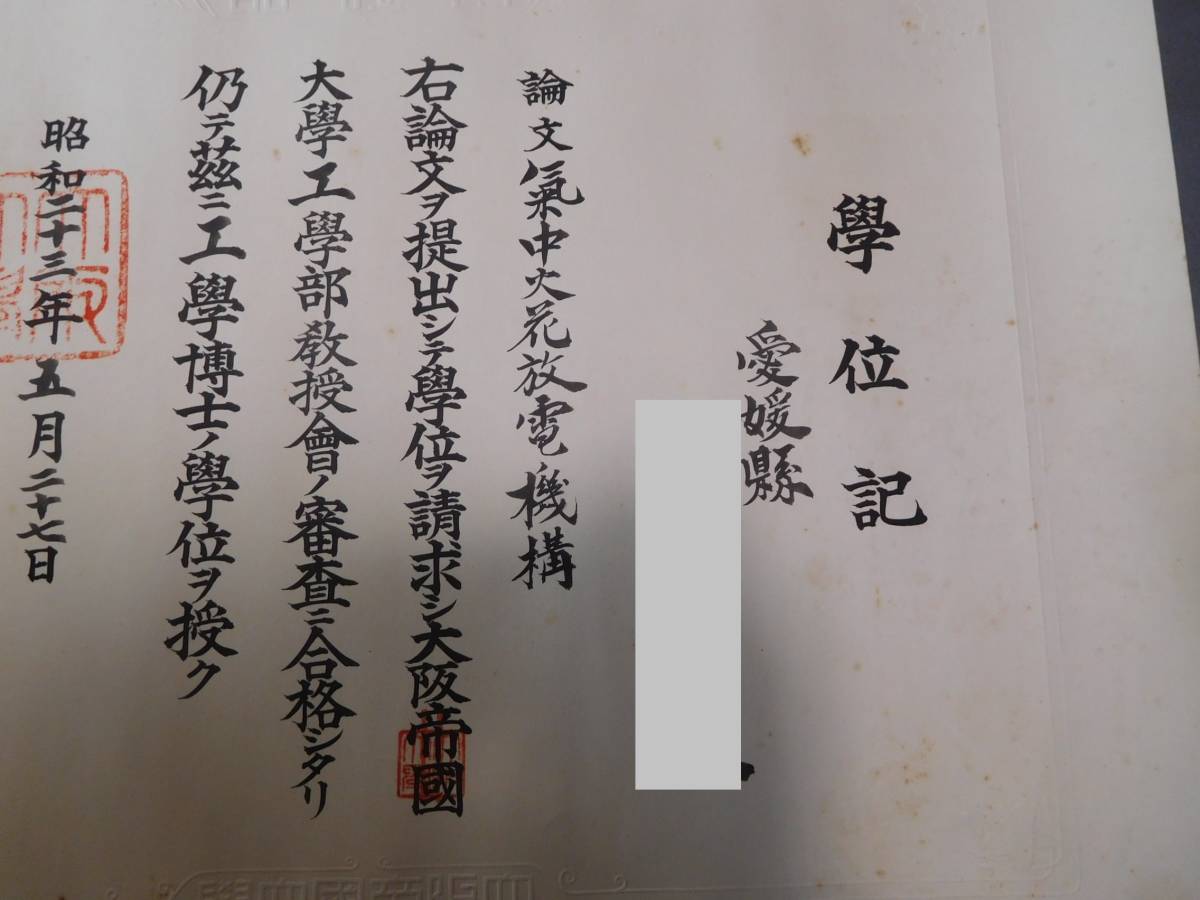 學位記
愛媛縣
論文氣中火花放電機構
右論文ヲ提出シテ學位ヲ請求シ大阪帝國
大學工學部教授會ノ審査ニ合格シタリ
仍テ茲ニ工學博士ノ學位ヲ授ク
昭和二十三年五月二十七日